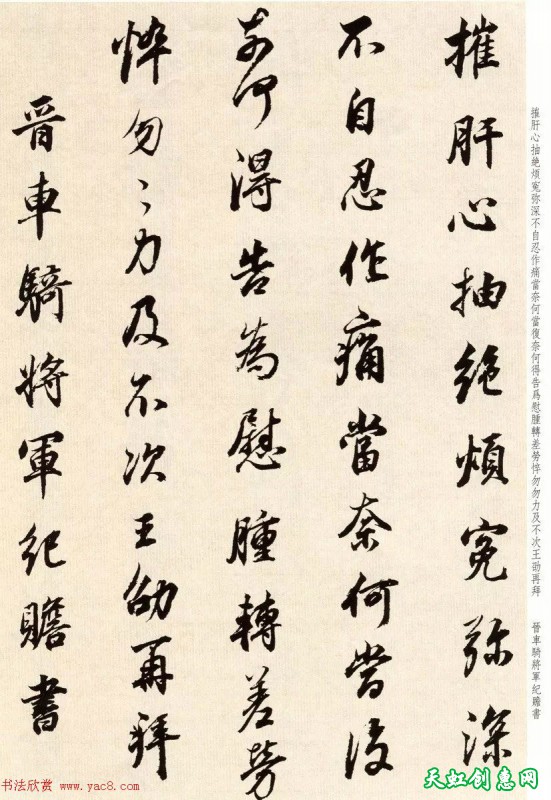 摧肝心抽絶煩寃弥深
不自忍作痛當奈何當復
奈何得告為慰腫轉差勞
悴勿〻力及不次王劭再拜
晉車騎將軍紀瞻書
摧肝心抽绝煩寃弥深不自忍作痛當奈何當復奈何得告爲慰腫轉差勞悴勿勿力及不次王劭再拜 晉車騎將軍紀瞻書
书法欣赏 www.yac8.com
天虹创惠网